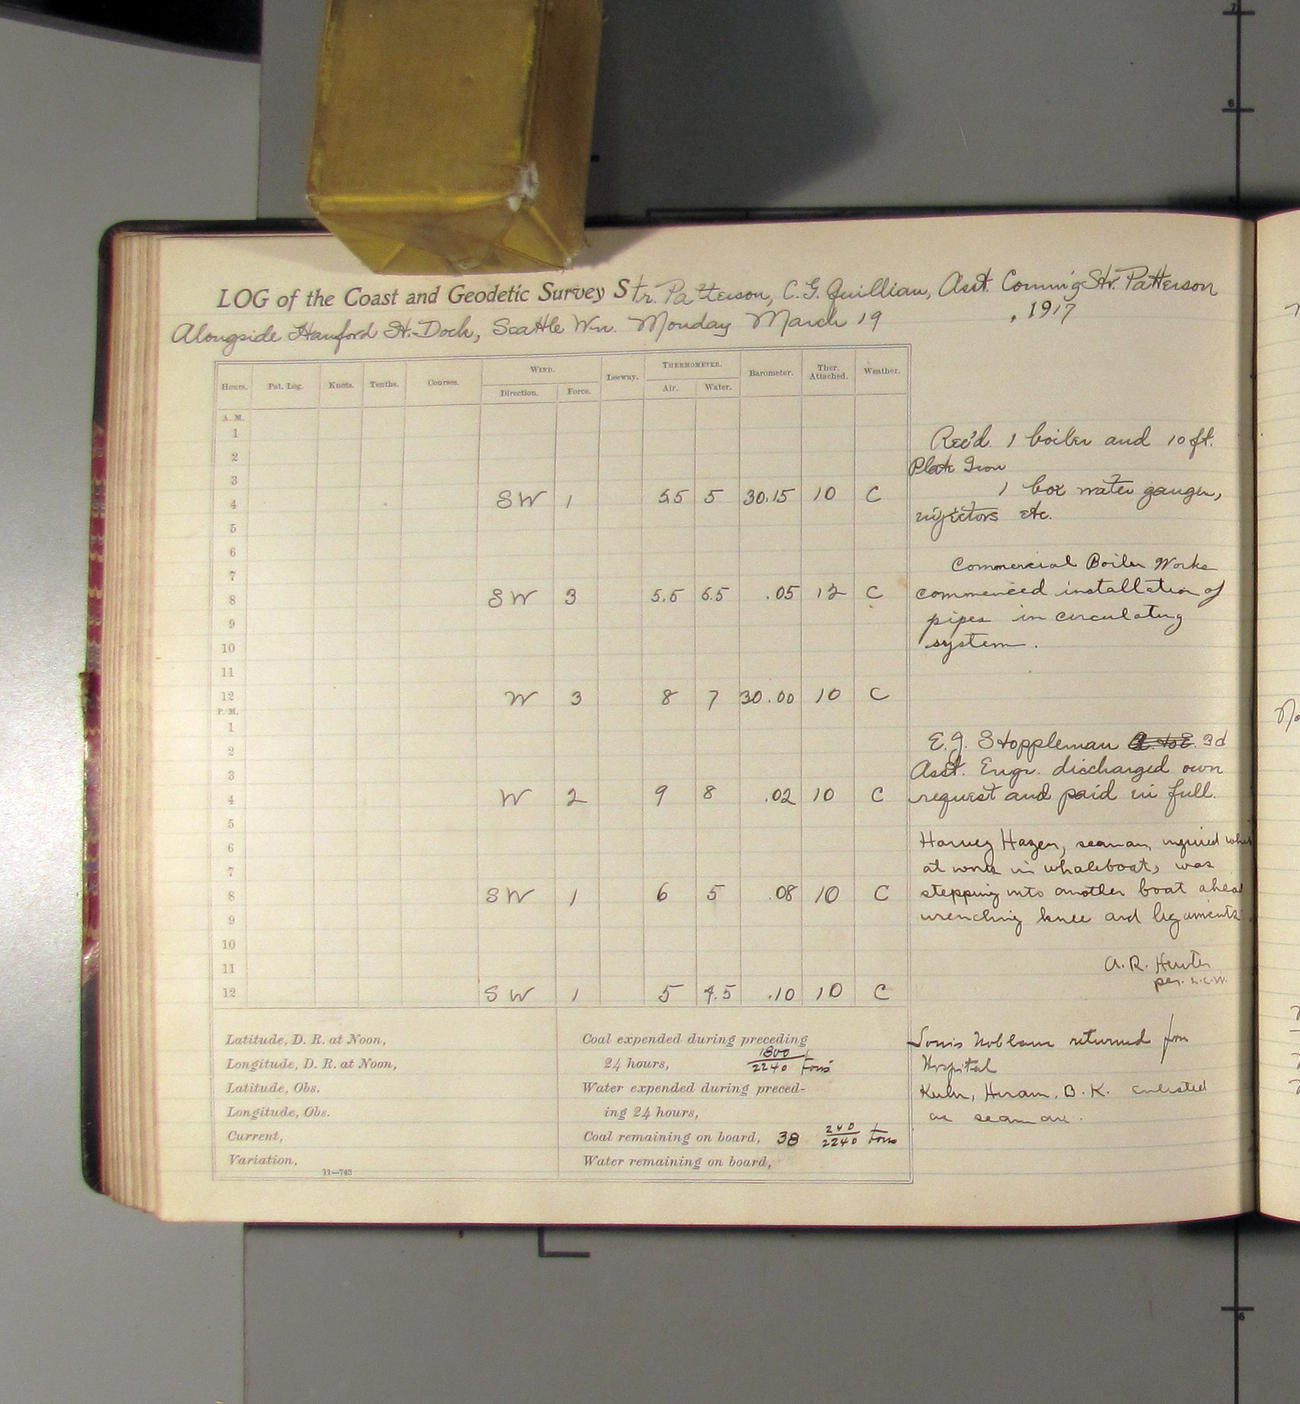 LOG of the Coast and Geodetic Survey Str. Patterson, C.G. Quillian, Asst. Coming Str. Patterson
Alongside Hanford St. Dock, Seattle Wn. Monday March 19, 1917
Hours. Pat. Log. Knots. Tenths. Courses. WIND. Direction. Force. Leeway. THERMOMETER. Air. Water. Barometer. Ther. Attached. Weather.
A. M.
1
2
3
4 SW 1 5.5 5 30.15 10 C
5
6
7
8 SW 3 5.5 6.5 .05 12 C
9
10
11
12 W 3 8 7 30.00 10 C
P. M.
1
2
3
4 W 2 9 8 .02 10 C
5
6
7
8 SW 1 6 5 .08 10 C
9
10
11
12 SW 1 5 4.5 .10 10 C
Rec'd. 1 boiler and 10 ft.
Plate Iron
1 box water gauges,
injectors etc.
Commercial Boiler Works
commenced installation of
pipes in circulating
system.
E.J. Stoppleman 3d
Asst. Engr. discharged own
request and paid in full.
Harvey Hazen, seaman, injured
at work in whaleboat, was
stepping into another boat
wrenching knee and ligaments
A.R. Hunter
per.
Louis returned from
Hospital
Kuhn, Hiram, B.K. enlisted
as seaman.
Latitude, D. R. at Noon,
Longitude, D. R. at Noon,
Latitude, Obs.
Longitude, Obs.
Current,
Variation,
11—763
Coal expended during preceding
24 hours, 1800/2240 Tons
Water expended during preced-
ing 24 hours,
Coal remaining on board, 38 240/2240 Tons
Water remaining on board,